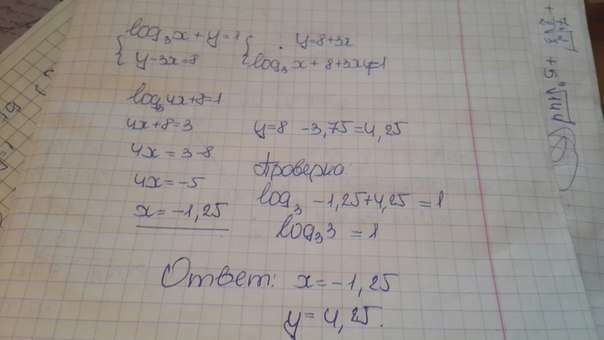 log₃x+y=1
y-3x=8
y=8+3x
log₃x+8+3x=1
log₃4x+8=1
4x+8=3
4x=3-8
4x=-5
x=-1,25
y=8 -3,75=4,25
Проверка
log₃ -1,25+4,25 =1
log₃3 =1
Ответ: x=-1,25
y=4,25.